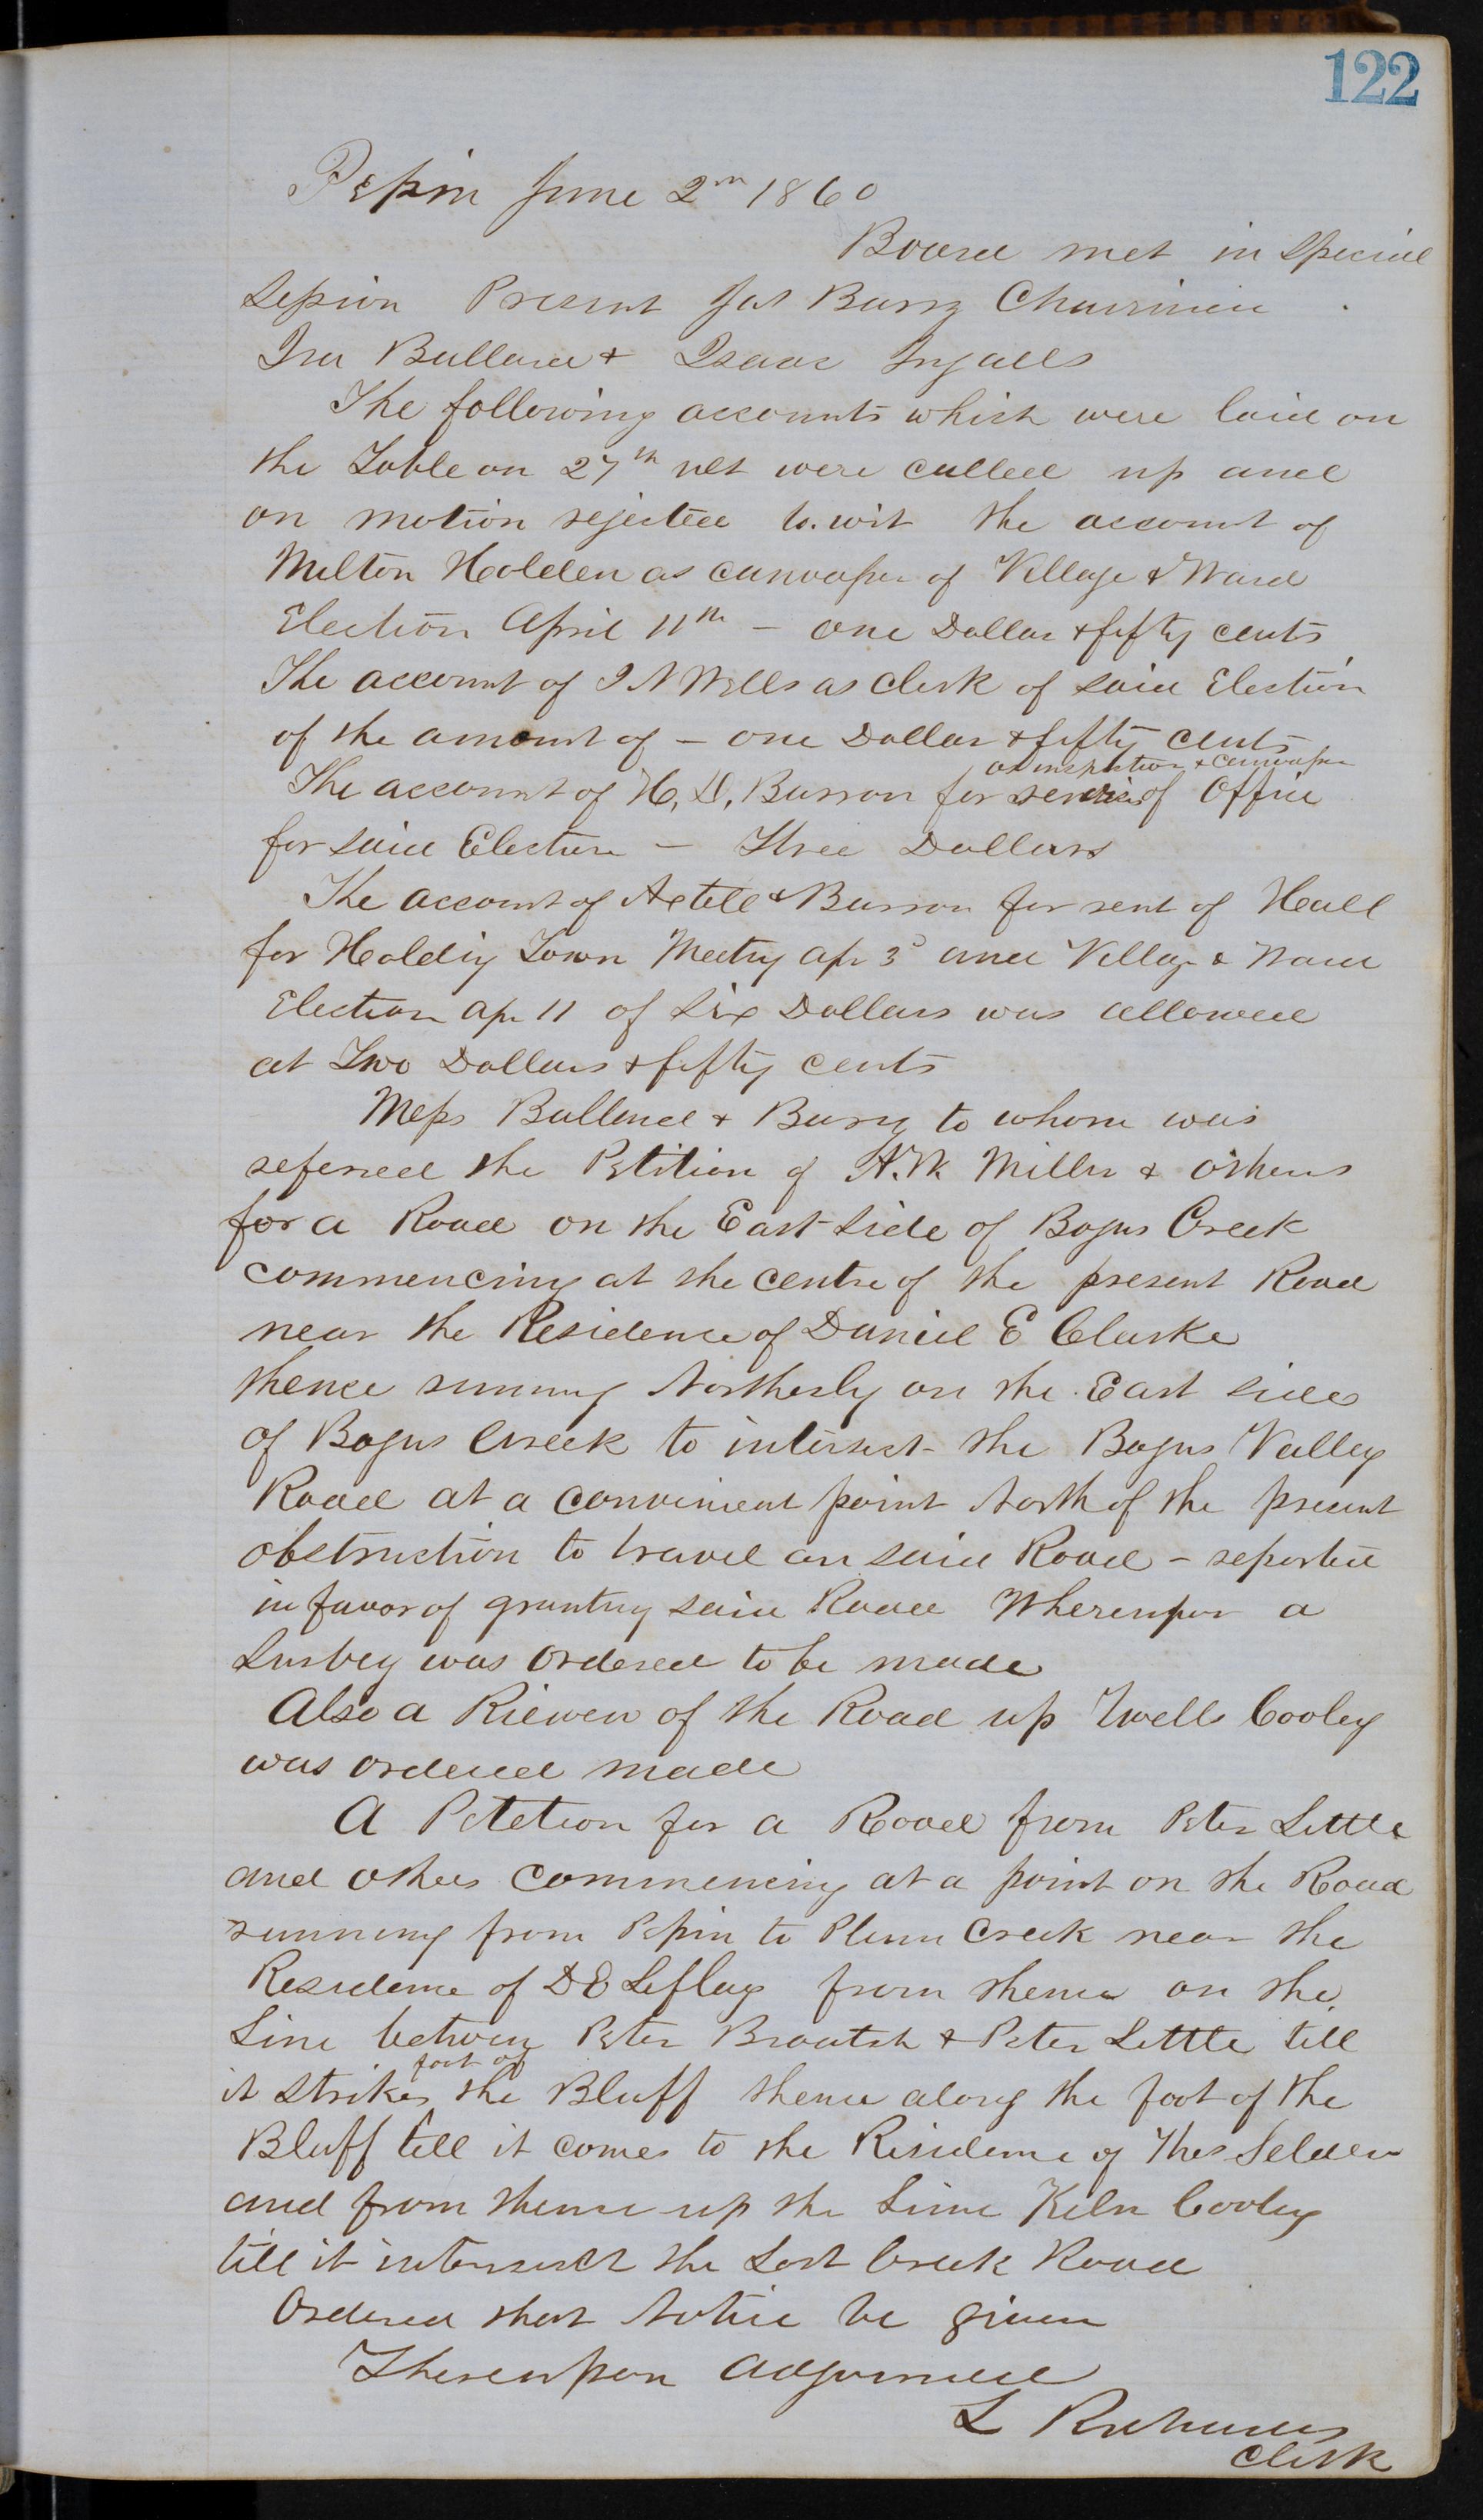 122
Pepin June 2nd 1860
Board met in Special
Session Present Jas Barry Chairman
Ira Bullard & Isaac Ingalls
The following accounts which were laid on
the Table on 27th ult were called up and
on motion rejected to.wit the account of
Milton Holden as canvasser of Village & Ward
Election April 11th – one Dollar & fifty cents
The account of I N Wells as Clerk of said Election
of the amount of – one Dollar & fifty cents
as inspector & canvasser
The account of H. D. Barron for services of Office
for said Election – Three Dollars
The account of Axtell & Barron for rent of Hall
for Holdig Town Meetig Apr 3d and Village & Ward
Election Apr 11 of Six Dollars was allowed
at Two Dollars & fifty cents
Mess Bullard & Barry to whom was
refered the Petition of A. W. Miller & others
for a Road on the East Side of Bogus Creek
commencing at the centre of the present Road
near the Residence of Daniel E Clarke
thence running Northerly on the East side
of Bogus Creek to intersect the Bogus Valley
Road at a convinient point North of the present
obstruction to travel on said Road – reported
in favor of granting said Road Whereupon a
Survey was ordered to be made
Also a Riewew of the Road up Cooley
was ordered made
A Petetion for a Road from Peter Little
and others commencing at a point on the Road
running from Pepin to Plum Creek near the
Residence of D E from thence on the
Line between Peter & Peter Little till
foot of
it Strikes the Bluff thence along the foot of the
Bluff till it comes to the Residence of Thos Selden
and from thence up the Lime Kiln Cooley
till it intersects the Lost Creek Road
Ordered that Notice be given
Thereupon Adjourned
L
Clerk